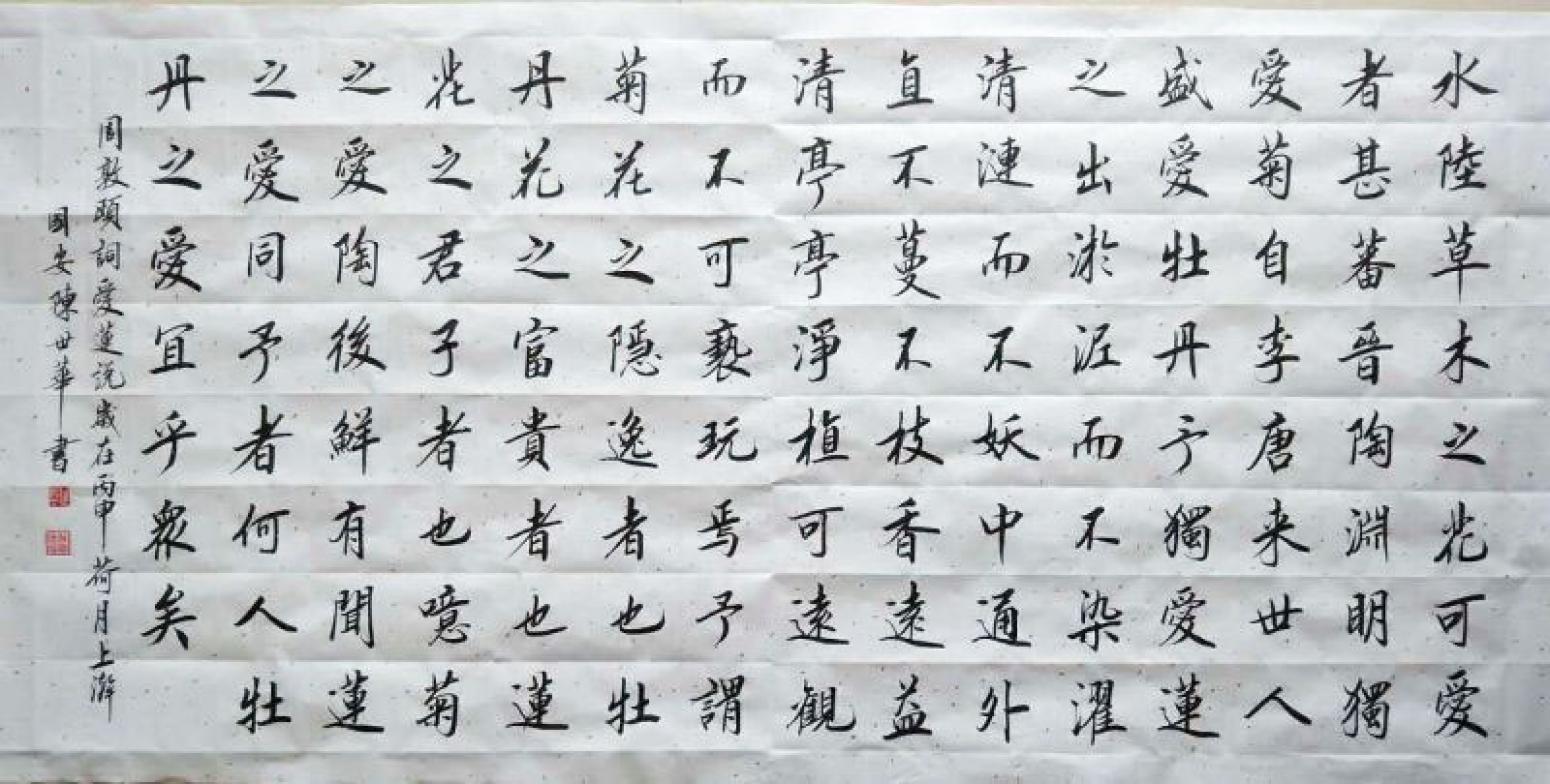 水陸草木之花可愛
者甚蕃晉陶淵明獨
愛菊自李唐来世人
盛愛牡丹予獨愛蓮
之出淤泥而不染濯
清漣而不妖中通外
直不蔓不枝香遠益
清亭亭淨植可遠觀
而不可褻玩焉予謂
菊花之隱逸者也牡
丹花之富貴者也蓮
花之君子者也噫菊
之愛陶後鮮有聞蓮
之愛同予者何人牡
丹之愛宜乎衆矣
周敦頤詞愛蓮説歲在丙申荷月上澣
國安陳世華書